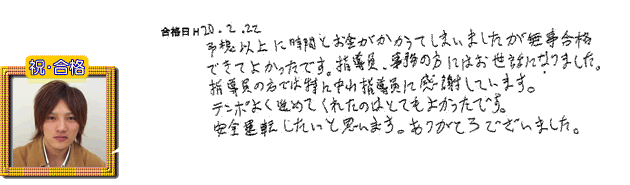 合格日 H20.2.22
予想以上に時間とお金がかかってしまいましたが無事合格
できてよかったです。指導員、事務の方にはお世話になりました。
指導員の方では特に中山指導員に感謝しています。
テンポよく進めてくれたのはとてもよかったです。
安全運転したいと思います。ありがとうございました。
祝・合格